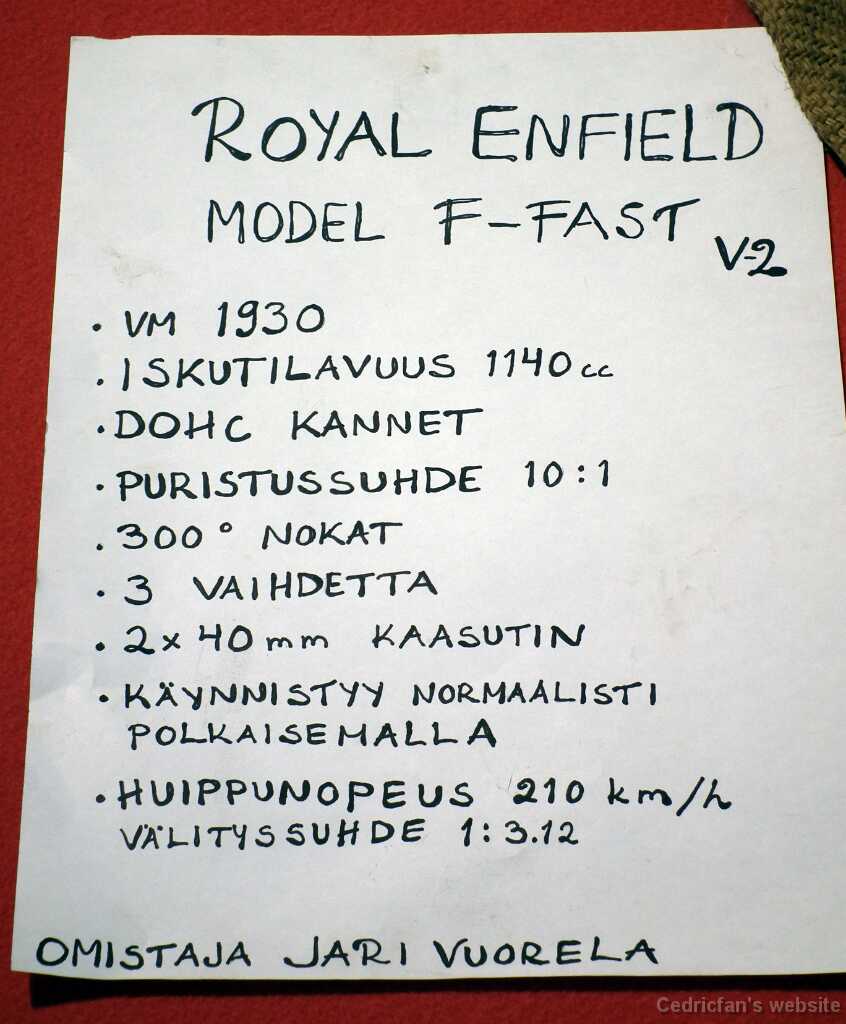 ROYAL ENFIELD
MODEL F-FAST
V-2
• VM 1930
• ISKUTILAVUUS 1140cc
• DOHC KANNET
• PURISTUSSUHDE 10:1
• 300° NOKAT
• 3 VAIHDETTA
• 2x40mm KAASUTIN
• KÄYNNISTYY NORMAALISTI
POLKAISEMALLA
• HUIPPUNOPEUS 210 km/h
VÄLITYSSUHDE 1:3.12
OMISTAJA JARI VUORELA
Cedricfan's website